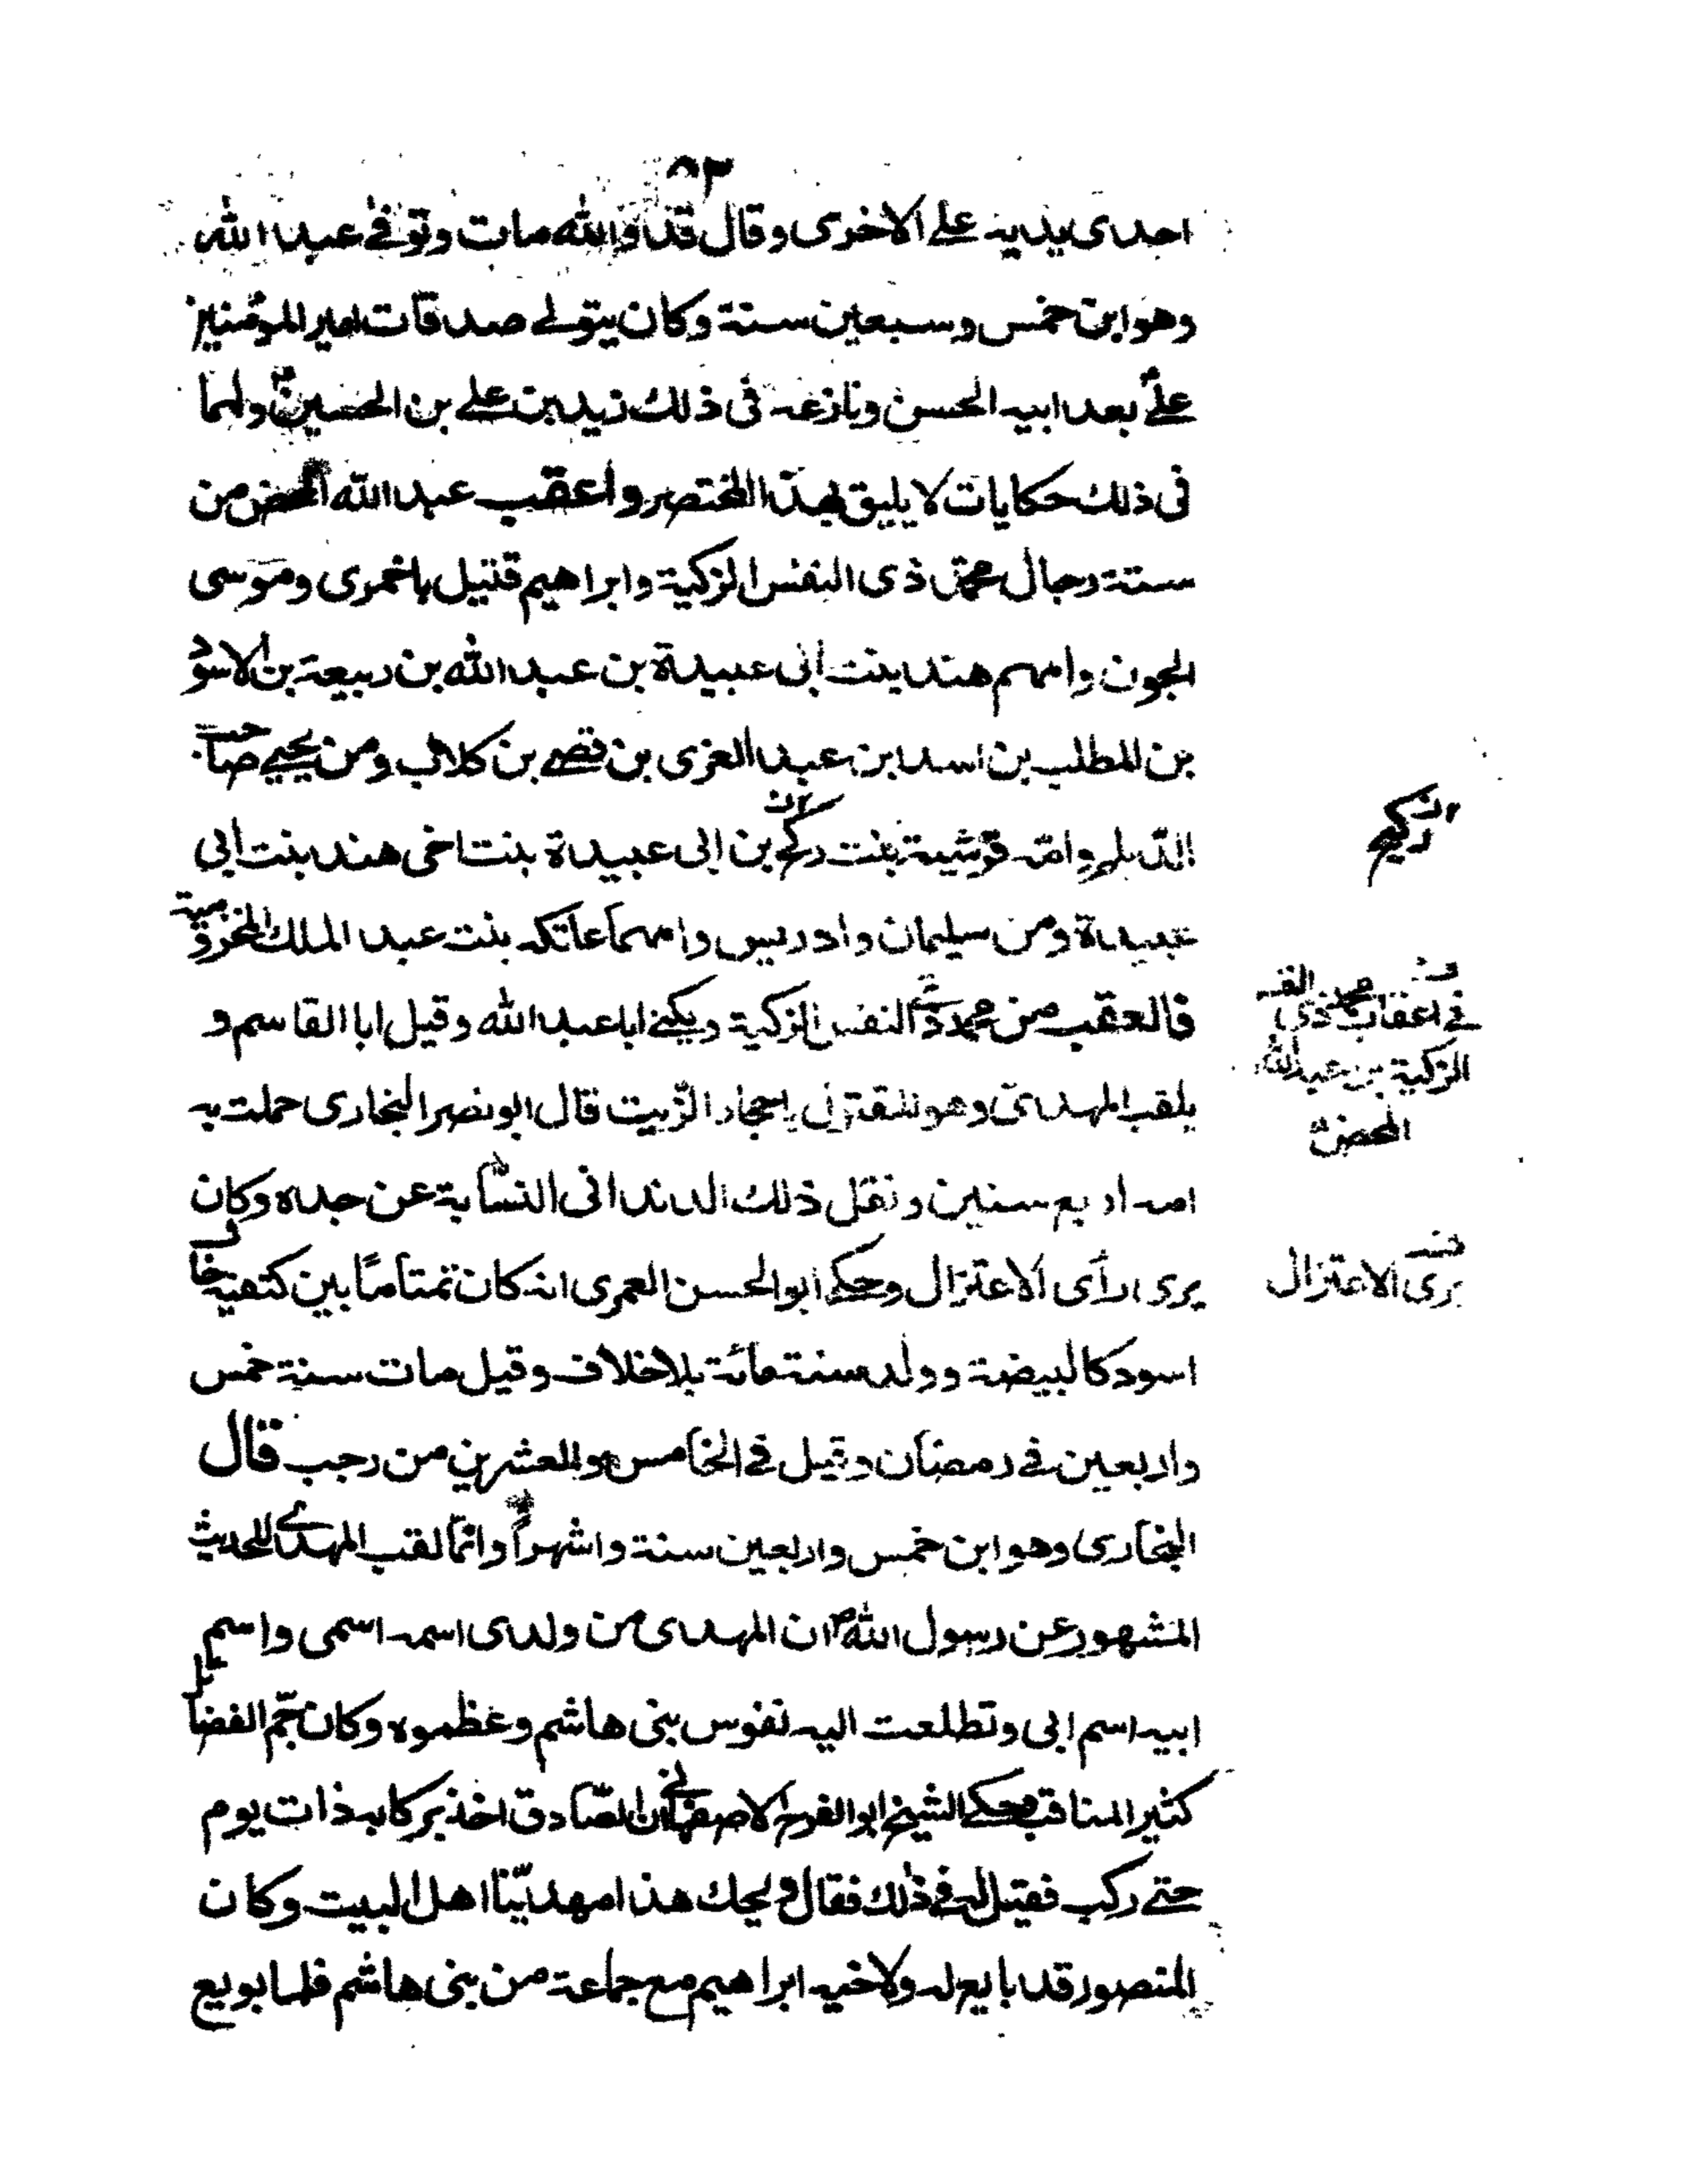 ٥٣
احدى يديه على الاخرى وقال قد والله مات وتوفى عبد الله
وهو ابن خمس وسبعين سنة وكان يتولى صدقات امير المؤمنين
علىّ بعد ابيه الحسن ونازعه فى ذلك زيد بن على بن الحسين ولهما
فى ذلك حكايات لا يليق بهذا المختصر واعقب عبد الله المحض من
ستة رجال محمد ذى النفس الزكية وابراهيم قتيل باخمرى وموسى
الجون وامهم هند بنت ابى عبيدة بن عبد الله بن ربيعة بن الاسود
بن المطلب بن اسد بن عبد العزى بن قصى بن كلاب ومن يحيى صاحب
الديلم وامّه قرشية بنت ركح بن ابى عبيدة بنت اخى هند بنت ابى
عبيدة ومن سليمان وادريس وامهما عاتكه بنت عبد الملك المخزومية
فالعقب من محمد ذى النفس الزكية ويكنى ابا عبد الله وقيل ابا القاسم و
فى اعقاب محمد ذى النفس
الزكية بن عبد الله
المحض
يلقب المهدىّ وهو المقتول باحجار الزّيت قال ابو نصر البخارى حملت به
امه اربع سنين ونقل ذلك الدندانى النسّابة عن جده وكان
يرى رأى الاعتزال وحكى ابو الحسن العمرى انه كان تمتامًا بين كتفيه خال
يرى الاعتزال
اسود كالبيضة وولد سنة مائة بلا خلاف وقيل مات سنة خمس
واربعين فى رمضان وقيل فى الخامس والعشرين من رجب قال
البخارى وهو ابن خمس واربعين سنة واشهراً وانّما لقب المهدى للحديث
المشهور عن رسول الله ص ان المهدى من ولدى اسمه اسمى واسم
ابيه اسم ابى وتطلعت اليه نفوس بنى هاشم وعظموه وكان جمّ الفضايل
كثير المناقب وحكى الشيخ ابو الفرج الاصفهانى ان الصّادق اخذ بركابه ذات يوم
حتى ركب فقيل له فى ذلك فقال ويحك هذا مهديّنا اهل البيت وكان
المنصور قد بايع له ولاخيه ابراهيم مع جماعة من بنى هاشم فلما بويع